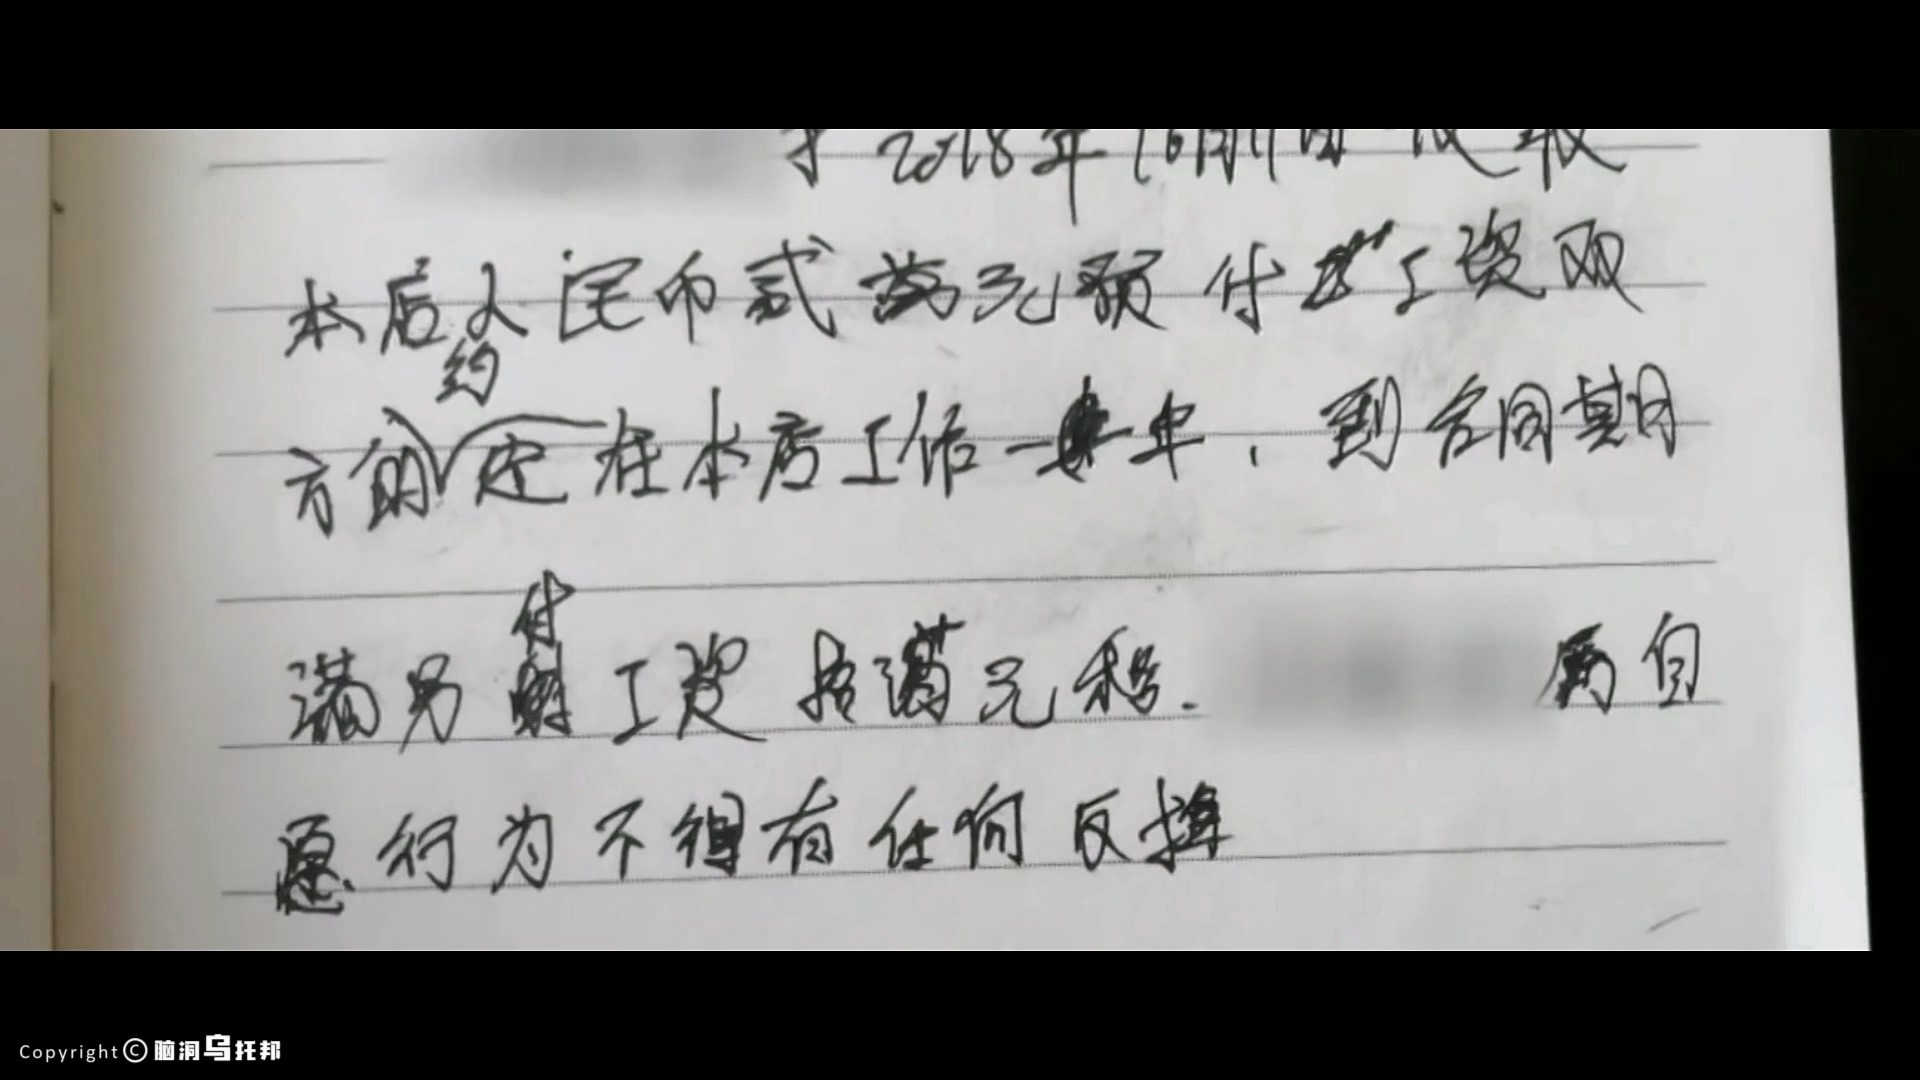 于2018年10月11日收取
本店人民币贰萬元预付工资双
方的约定在本店工作一年，到合同期
满另付工资拾满元整.
两自
愿行为不得有任何反悔
Copyright © 脑洞乌托邦